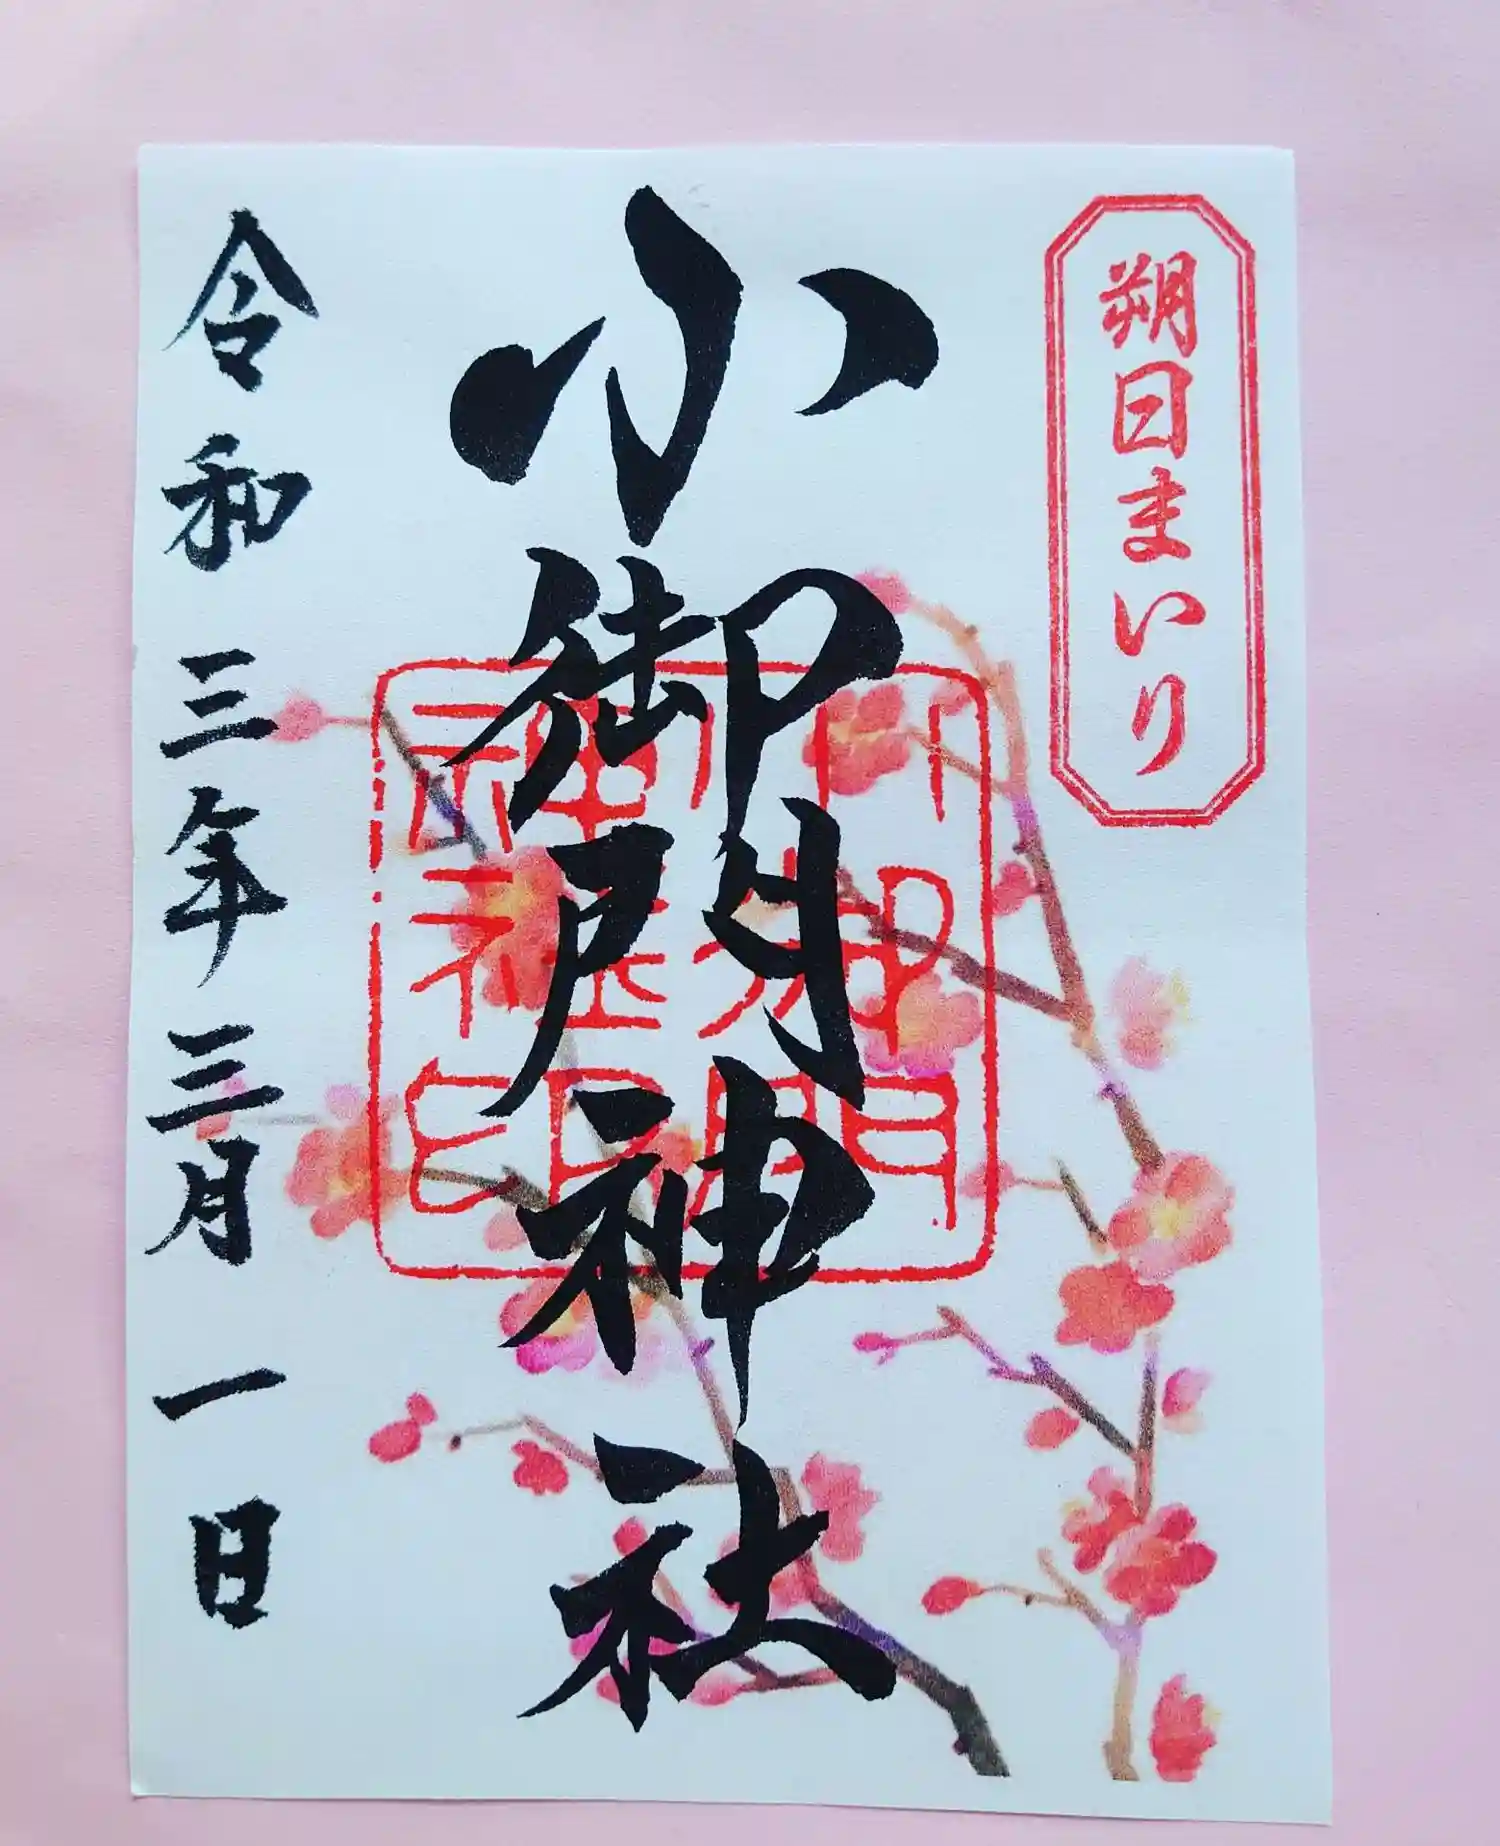 朔日まいり
小御門神社
小御門神社印
令和三年三月一日